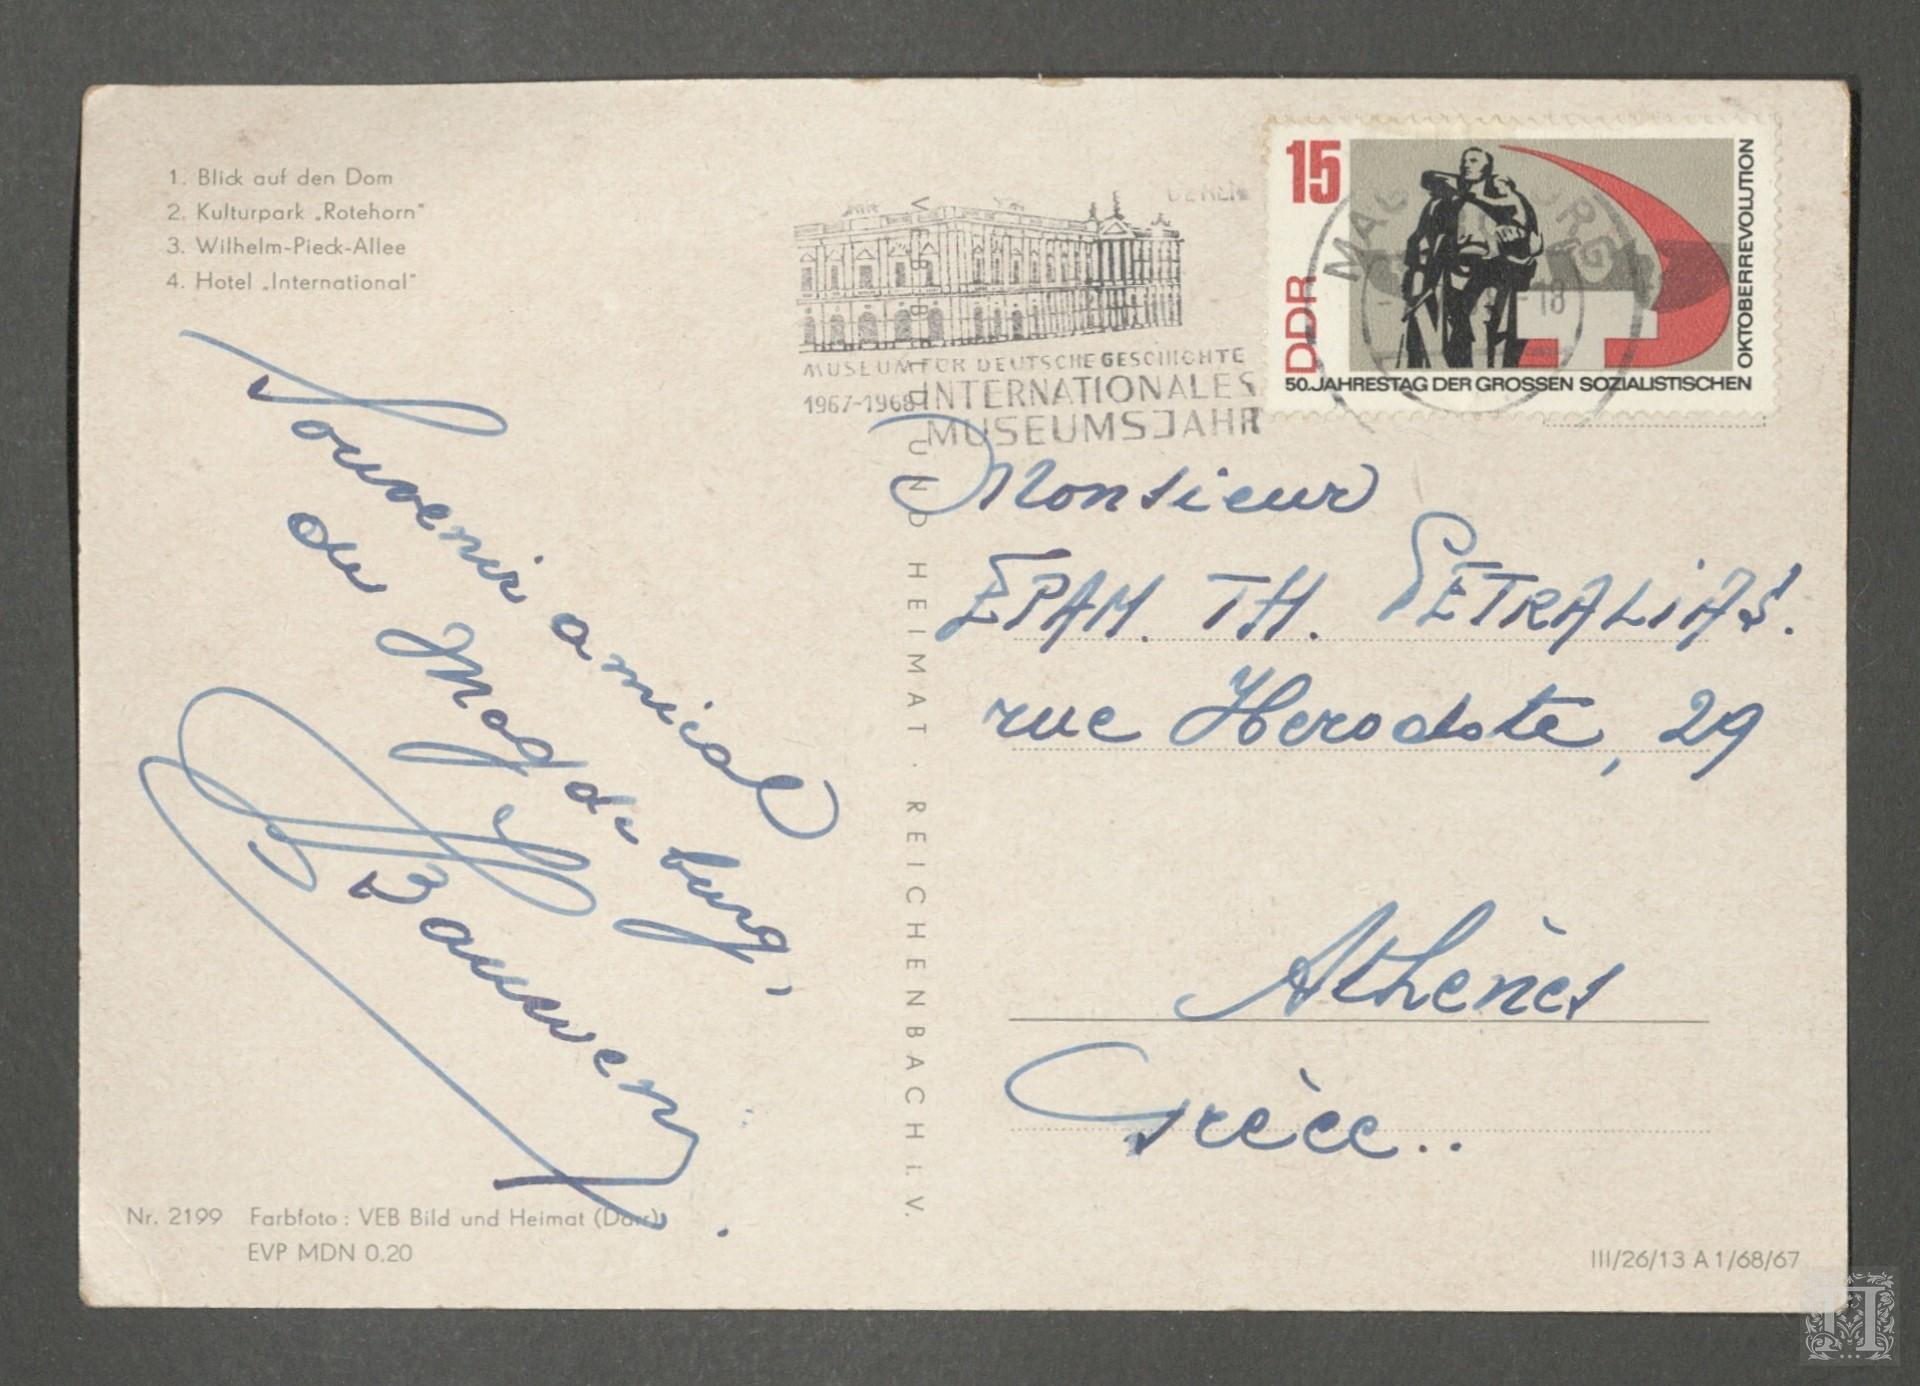 1. Blick auf den Dom
2. Kulturpark „Rotehorn"
3. Wilhelm-Pieck-Allee
4. Hotel „International"
Souvenir amical
de Magdeburg,
Bauwens
Nr. 2199 Farbfoto: VEB Bild und Heimat (Darr)
EVP MDN 0.20
VEB BILD UND HEIMAT · REICHENBACH i. V.
BERLIN
MUSEUM FÜR DEUTSCHE GESCHICHTE
1967-1968 INTERNATIONALES
MUSEUMSJAHR
15
DDR
50. JAHRESTAG DER GROSSEN SOZIALISTISCHEN
OKTOBERREVOLUTION
MAGDEBURG
18
Monsieur
EPAM. TH. PETRALIAS.
rue Herodote, 29
Athènes
Grèce..
III/26/13 A 1/68/67